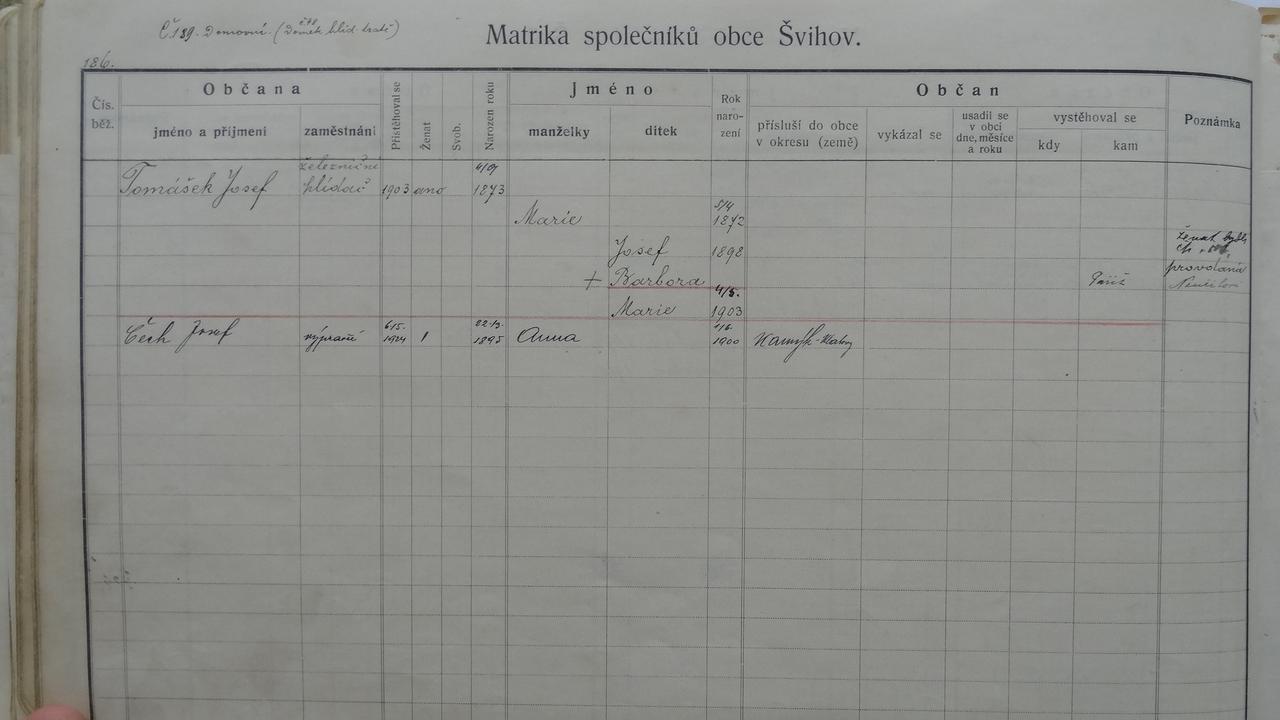 Č 139. Domovní. (Domek hlíd. trati)
Matrika společníků obce Švihov.
186.
Čís. běž.
Občana
jméno a příjmení
zaměstnání
Přistěhoval se
Ženat
Svob.
Narozen roku
Jméno
manželky
dítek
Rok naro- zení
Občan
přísluší do obce v okresu (země)
vykázal se
usadil se v obci dne, měsíce a roku
vystěhoval se
kdy
kam
Poznámka
Tomášek Josef železniční hlídač 1903 ano 1873
Marie 5/4 1872
Josef 1898 ženat
+ Barbora provdána
Marie 4/5. 1903
Čech Josef výpravčí 6/5. 1924 1 1895 Anna 1900 Kamýk